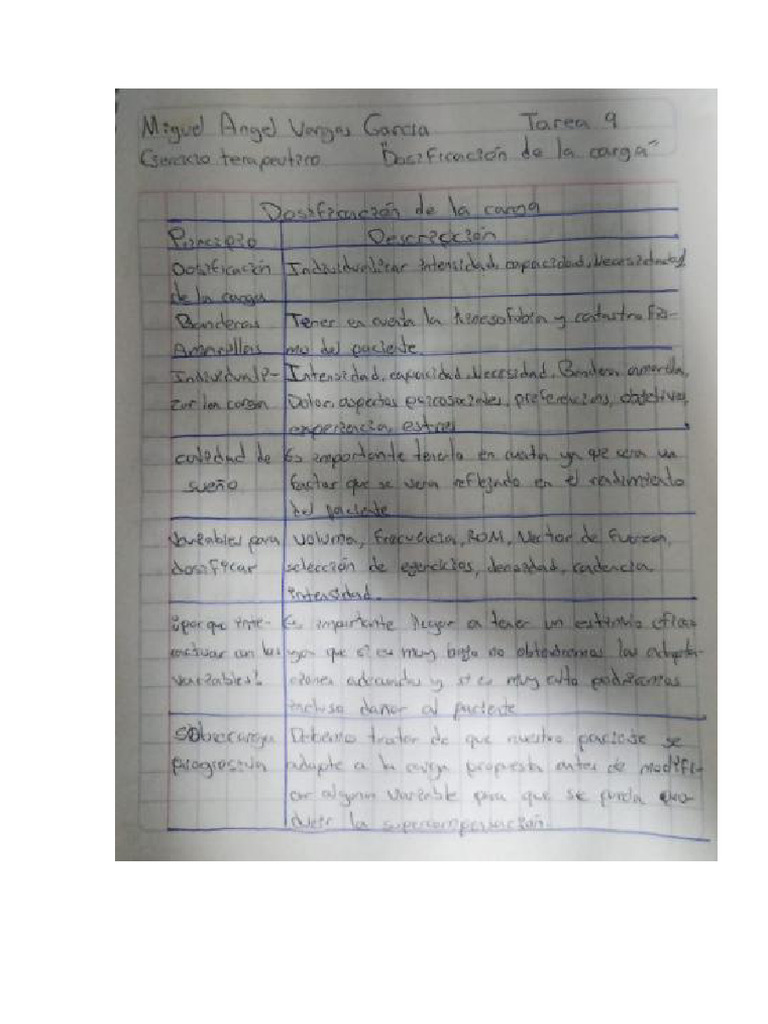 Miguel Angel Vargas Garcia Tarea 9
Ejercicio terapeutico "Dosificación de la carga"
Dosificación de la carga
Principio Descripción
Dosificación Individualizar intensidad, capacidad, Necesidad
de la carga
Banderas Tener en cuenta la kinesofobia y catastrofis-
Amarillas mo del paciente.
Individuali- Intensidad, capacidad, Necesidad, Bandera amarilla,
zar la carga Dolor, aspectos psicosociales, preferencias, objetivos,
experiencia, estres
calidad de Es importante tenerlo en cuenta ya que sera un
sueño factor que se vera reflejado en el rendimiento
del paciente
Variables para Volumen, Frecuencia, ROM, Vector de fuerza,
dosificar selección de ejercicios, densidad, cadencia,
intensidad.
¿por que inte- Es importante llegar a tener un estimulo eficaz
ractuar con las ya que si es muy bajo no obtendremos las adapta-
variables? ciones adecuadas y si es muy alto podriamos
incluso dañar al paciente
Sobrecarga Debemo tratar de que nuestro paciente se
progresiva adapte a la carga propuesta antes de modifi-
car alguna variable para que se pueda
la supercompensación.